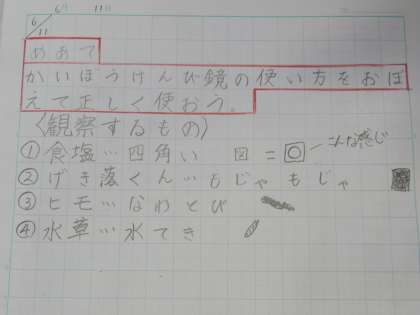 6/11
めあて
かいぼうけんび鏡の使い方をおぼ
えて正しく使おう。
〈観察するもの〉
①食塩…四角い 図=こんな感じ
②げき落くん…もじゃもじゃ
③ヒモ…なわとび
④水草…水てき